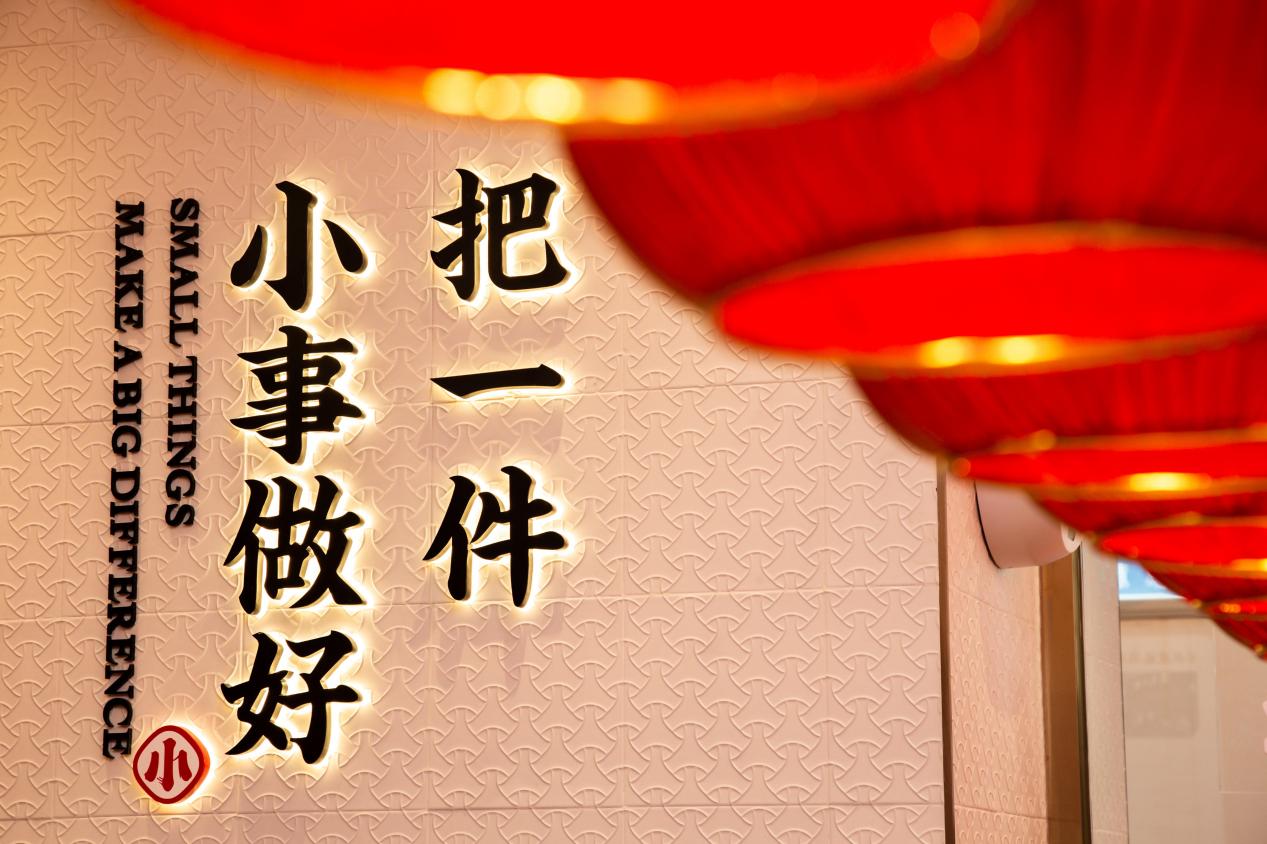 把一件
小事做好
SMALL THINGS
MAKE A BIG DIFFERENCE
小